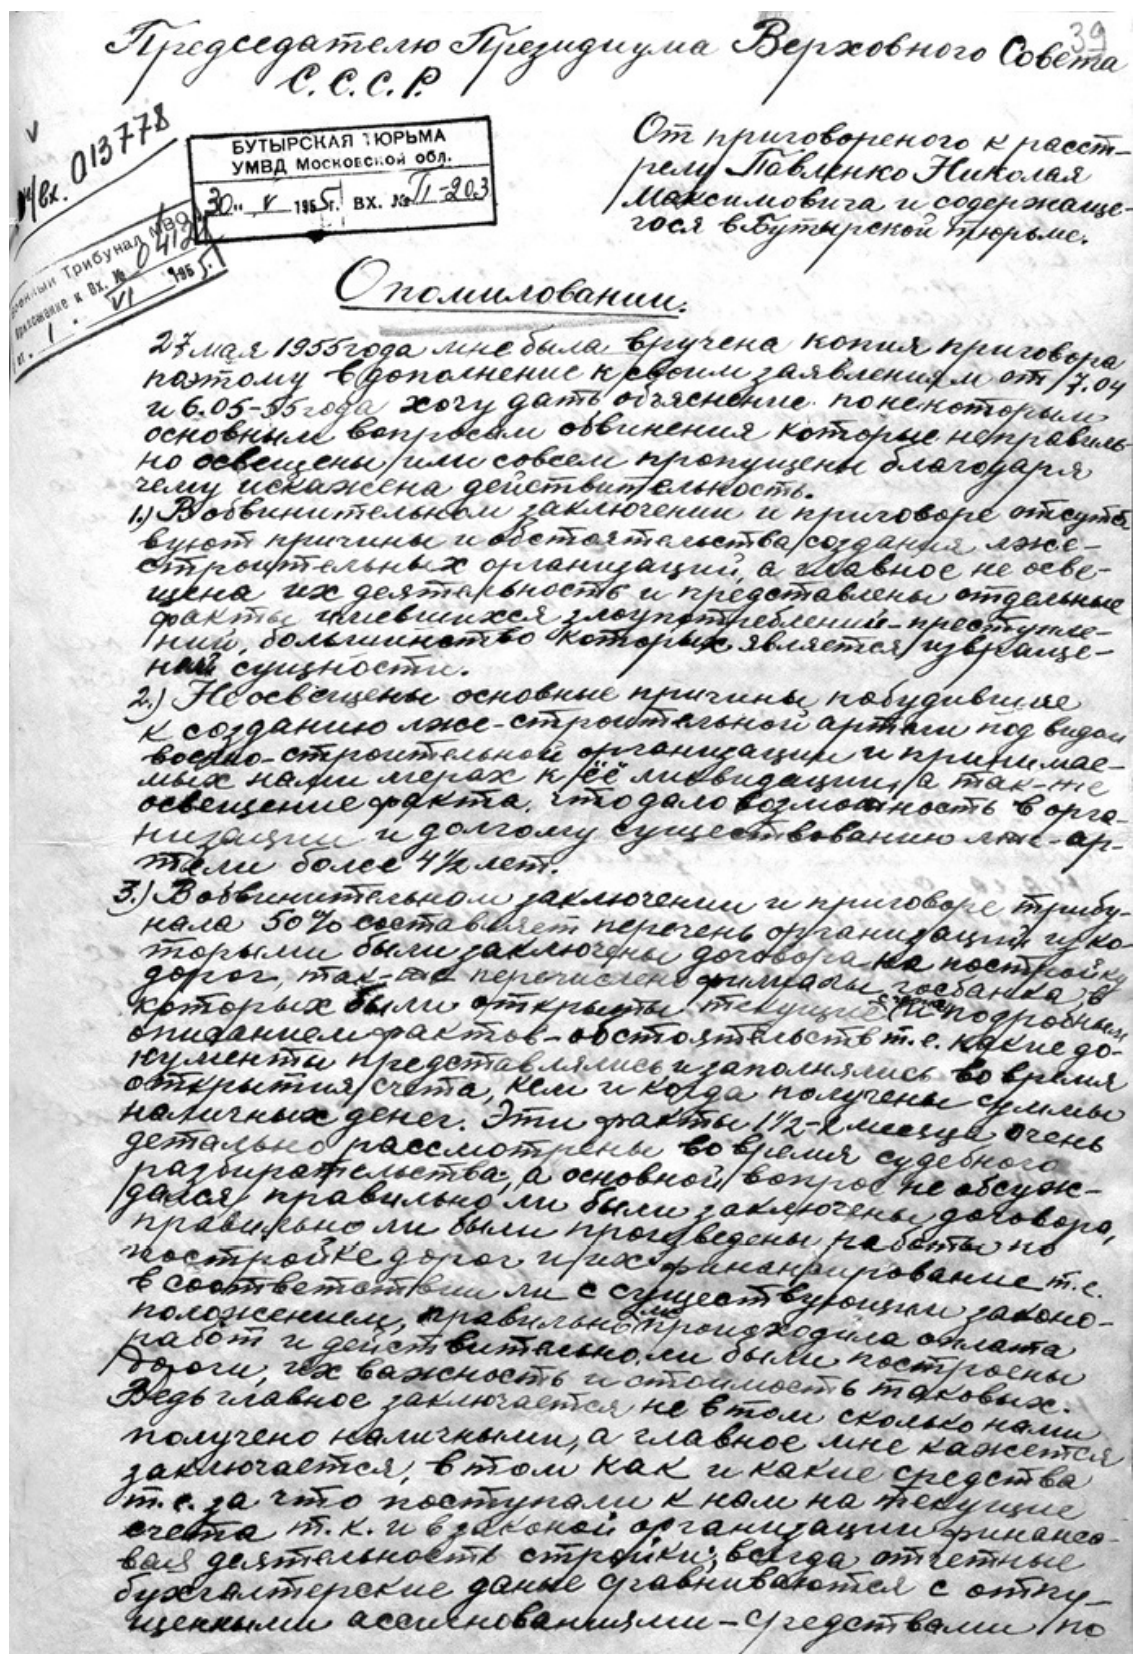 39
Председателю Президиума Верховного Совета
С.С.С.Р.
013778
БУТЫРСКАЯ ТЮРЬМА
УМВД Московской обл.
"30" V 1955г. ВХ. № П-203
Военный Трибунал МВО
приложение к Вх. №
от. 1 " VI 1955г.
От приговореного к расст-
релу Павленко Николая
Максимовича и содержаще-
гося в Бутырской тюрьме.
О помиловании.
27 мая 1955 года мне была вручена копия приговора
поэтому в дополнение к своим заявлениям от 17.04
и 6.05-55 года хочу дать объяснение по некоторым
основным вопросам обвинения которые неправиль-
но освещены или совсем пропущены благодаря
чему искажена действительность.
1.) В обвинительном заключении и приговоре отсутст
вуют причины и обстоятельства создания лже-
строительных организаций, а главное не осве-
щена их деятельность и представлены отдельные
факты имевшихся злоупотреблений-преступле-
ний, большинство которых является извраще-
ний сущности.
2.) Не освещены основные причины побудившие
к созданию лже-строительной артели под видом
военно-строительной организации и принимае-
мых нами мерах к её ликвидации, а так-же
освещение факта, что дало возможность в орга-
низации и долгому существованию лже-ар-
тели более 4½ лет.
3.) В обвинительном заключении и приговоре трибу-
нала 50% составляет перечень организаций из ко-
торыми были заключены договора на постройку
дорог, так-же перечислено филиалы госбанка, в
которых были открыты текущие счета и подробным
описанием фактов-обстоятельств т.е. какие до-
кументы представлялись и заполнялись во время
открытия счета, кем и когда получены суммы
наличных денег. Эти факты 1½-2 месяца очень
детально рассмотрены во время судебного
разбирательства, а основной вопрос не обсуж-
дался правильно ли были заключены договора,
правильно ли были произведены работы по
постройке дорог и их финансирование т.е.
в соответствии ли с существующим законо-
положением, правильно ли происходила оплата
работ и действительно ли были построены
дороги, их важность и стоимость таковых.
Ведь главное заключается не в том сколько нами
получено наличными, а главное мне кажется
заключается, в том как и какие средства
т.е. за что поступали к нам на текущие
счета т.к. и в законой организации финансо-
вая деятельность стройки, всегда отчетные
бухгалтерские даные сравниваются с отпу-
щенными ассигнованиями-средствами по